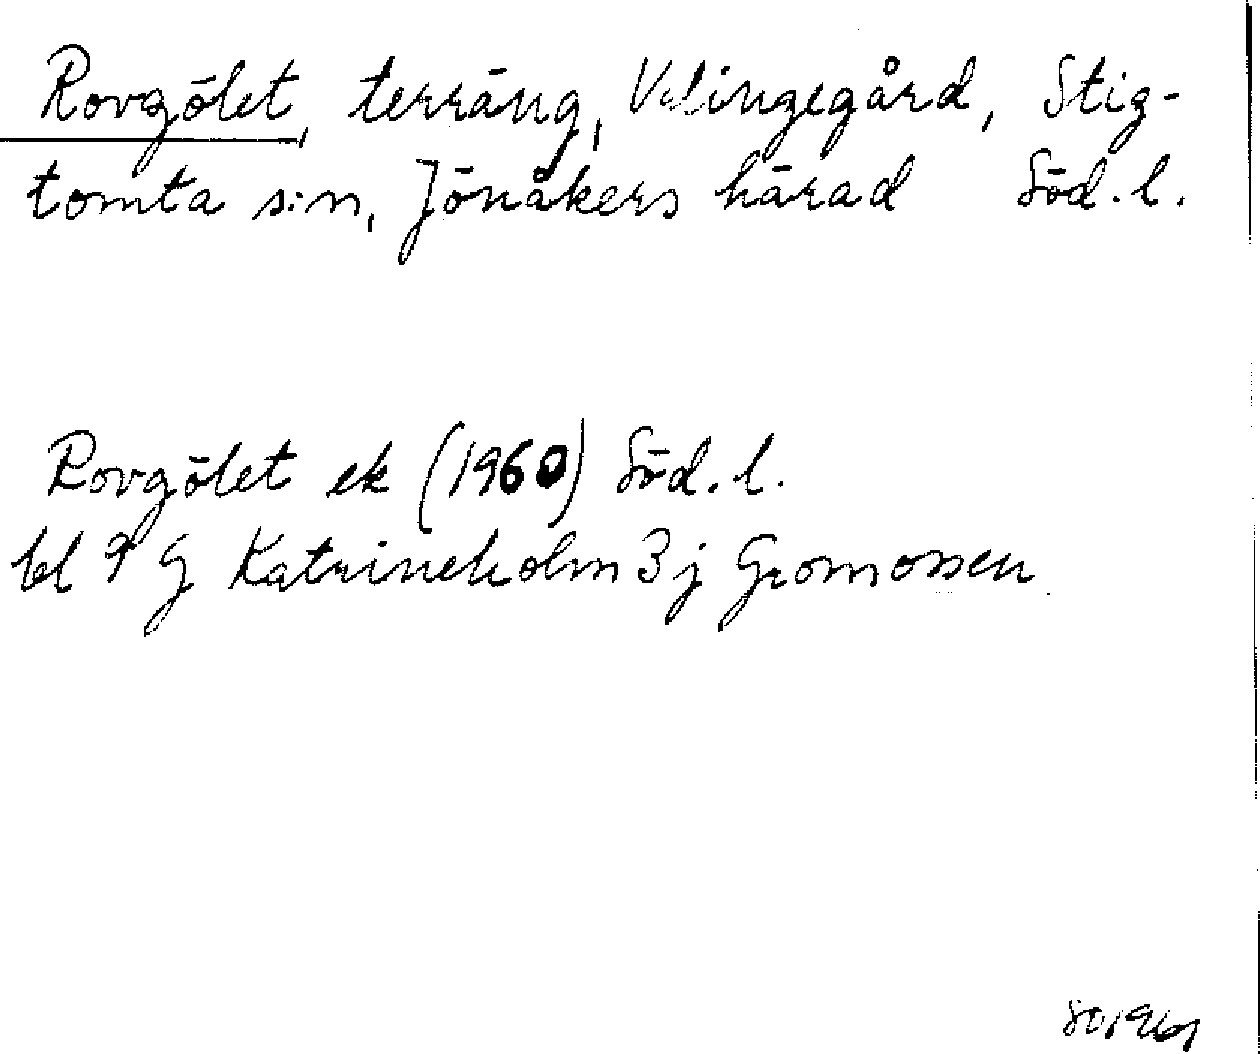 Rovgölet, terräng, Välingegård, Stig-
tomta s:n, Jönåkers härad Söd. l.
Rovgölet ek (1960) Söd. l.
bl 9 G Katrineholm 3 j Gromossen